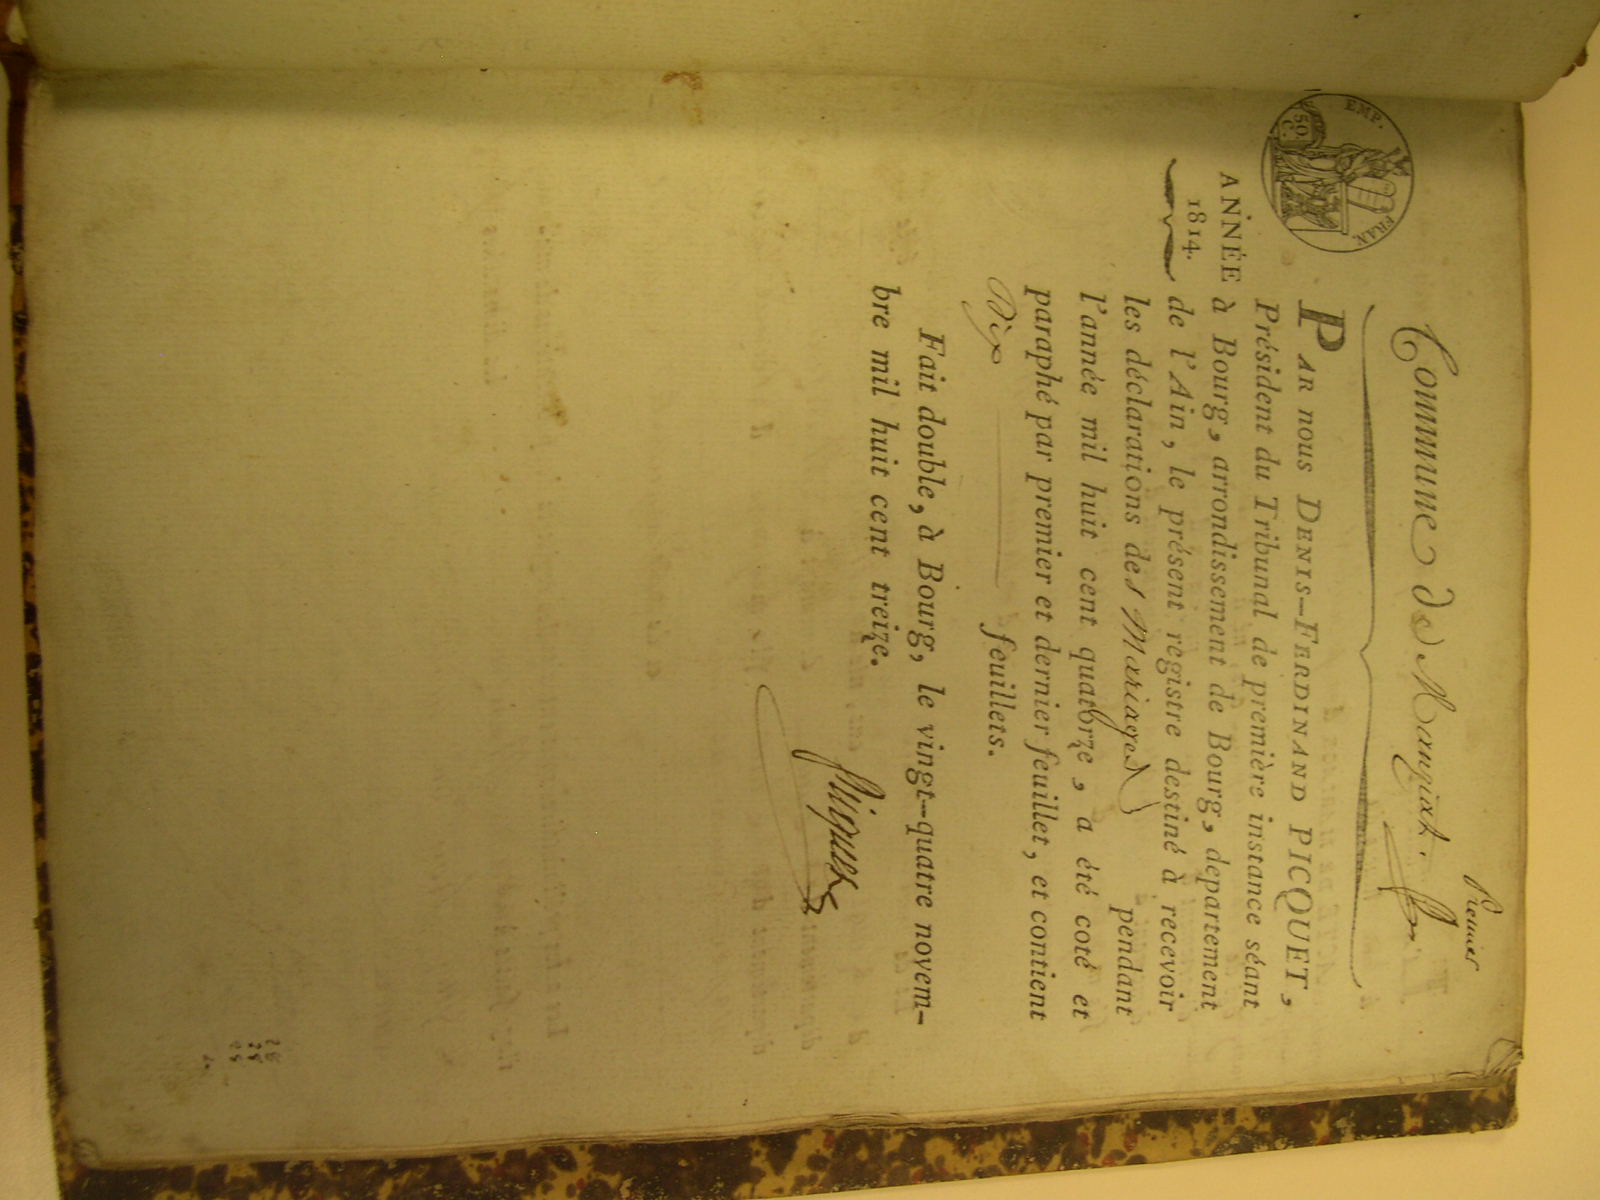 Premier
Commune de Mangiat.
EMP. FRAN.
50 C.
ANNÉE
1814.
PAR nous DENIS-FERDINAND PICQUET,
Président du Tribunal de première instance séant
à Bourg, arrondissement de Bourg, département
de l'Ain, le présent régistre destiné à recevoir
les déclarations des Mariages pendant
l'année mil huit cent quatorze, a été coté et
paraphé par premier et dernier feuillet, et contient
Dix feuillets.
Fait double, à Bourg, le vingt-quatre novem-
bre mil huit cent treize.
Picquet